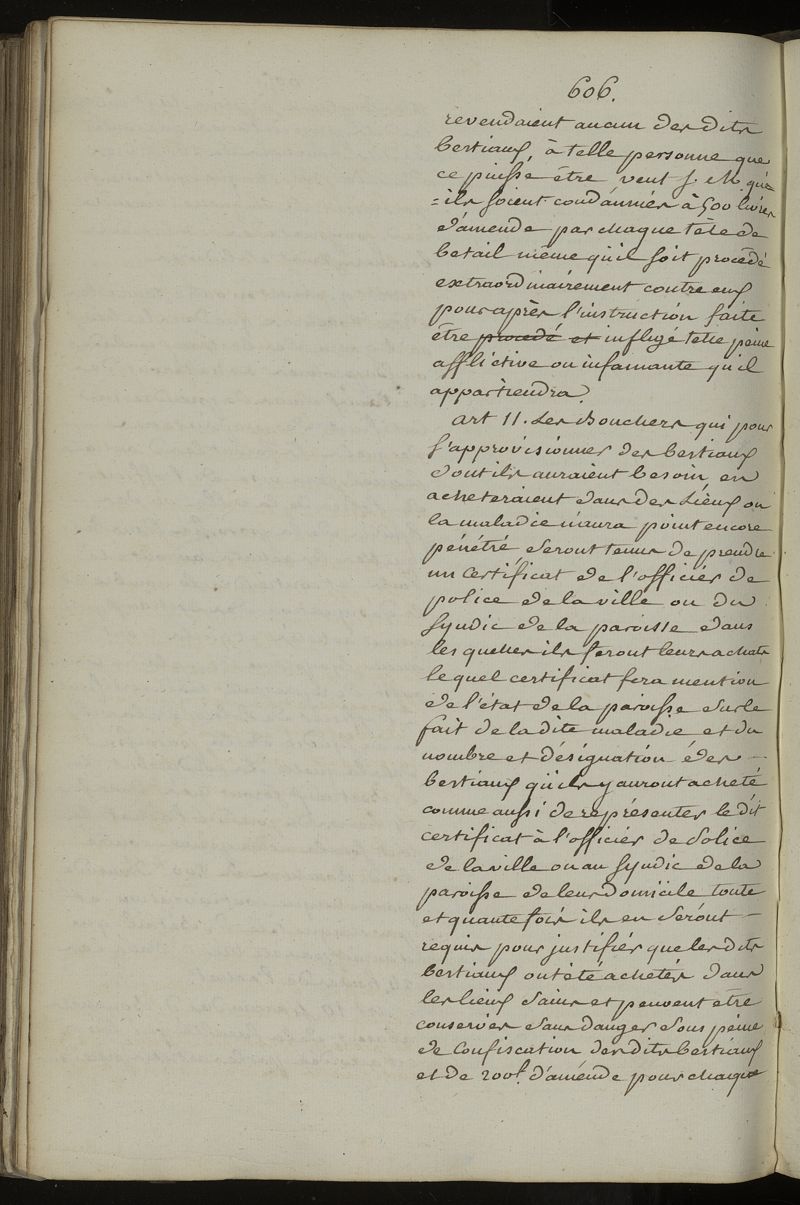 606.
revendaient aucun des dits
bestiaux, à telle personne que
ce puisse être veut S. M. qu'=
=ils soient condamnés à 500 livres
d'amende par chaque tête de
betail même qu'il soit procédé
extraordinairement contre eux
pour après l'instruction faite
être procedé et infligé telle peine
afflictive ou infamante qu'il
appartiendra.
art 11. Les Bouchers qui pour
s'approvisionner des bestiaux
dont ils auraient besoin, en
acheteraient dans des Lieux ou
la maladie n'aura point encore
pénétré seront tenus de prendre
un certificat de l'officier de
police de la ville ou du
Syndic de la paroisse dans
les quelles ils feront leurs achats
le quel certificat fera mention
de l'état de la paroisse sur le
fait de la dite maladie et du
nombre et désignation des
bestiaux qu'ils y auront acheté
comme aussi de représenter le dit
certificat à l'officier de Police
de la ville ou au Syndic de la
paroisse de leur domicile toute
et quante fois ils en seront
requis pour justifier que les dits
bestiaux ont été achetés dans
les lieux sains et peuvent être
conservés sans danger sous peine
de Confiscation des dits bestiaux
et de 200l. d'amende pour chaque